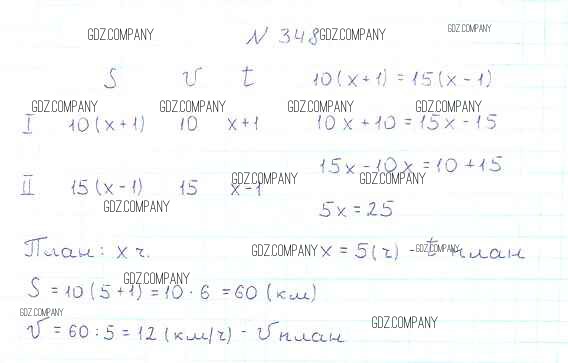 GDZ.COMPANY N 348 GDZ.COMPANY GDZ.COMPANY
S V t 10(x+1) = 15(x-1)
GDZ.COMPANY GDZ.COMPANY GDZ.COMPANY GDZ.COMPANY
I 10(x+1) 10 x+1 10x+10 = 15x-15
15x-10x = 10+15
GDZ.COMPANY GDZ.COMPANY
II 15(x-1) 15 x-1
GDZ.COMPANY 5x = 25
План: x ч. GDZ.COMPANY x = 5(ч) - t план GDZ.COMPANY
GDZ.COMPANY
S = 10(5+1) = 10·6 = 60 (км)
GDZ.COMPANY GDZ.COMPANY
V = 60:5 = 12 (км/ч) - V план